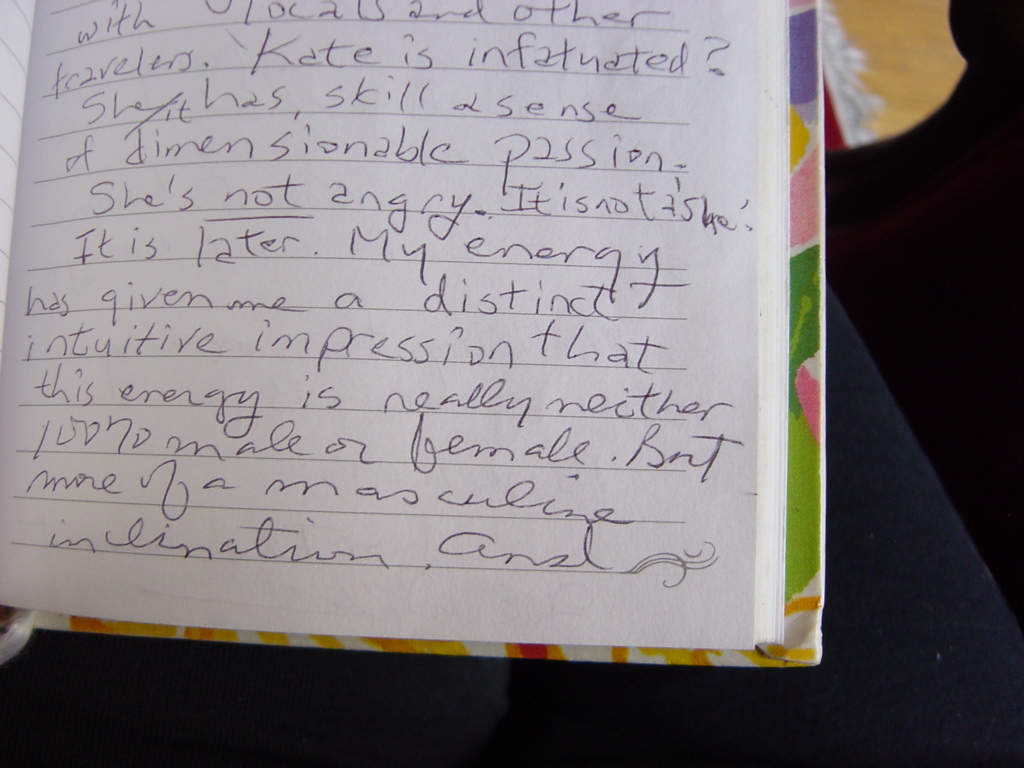 with locals and other
travelers. Kate is infatuated?
She/it has, skill a sense
of dimensionable passion.
She's not angry. It is not a 'she'.
It is later. My energy
has given me a distinct
intuitive impression that
this energy is really neither
100% male or female. But
more of a masculine
inclination. And